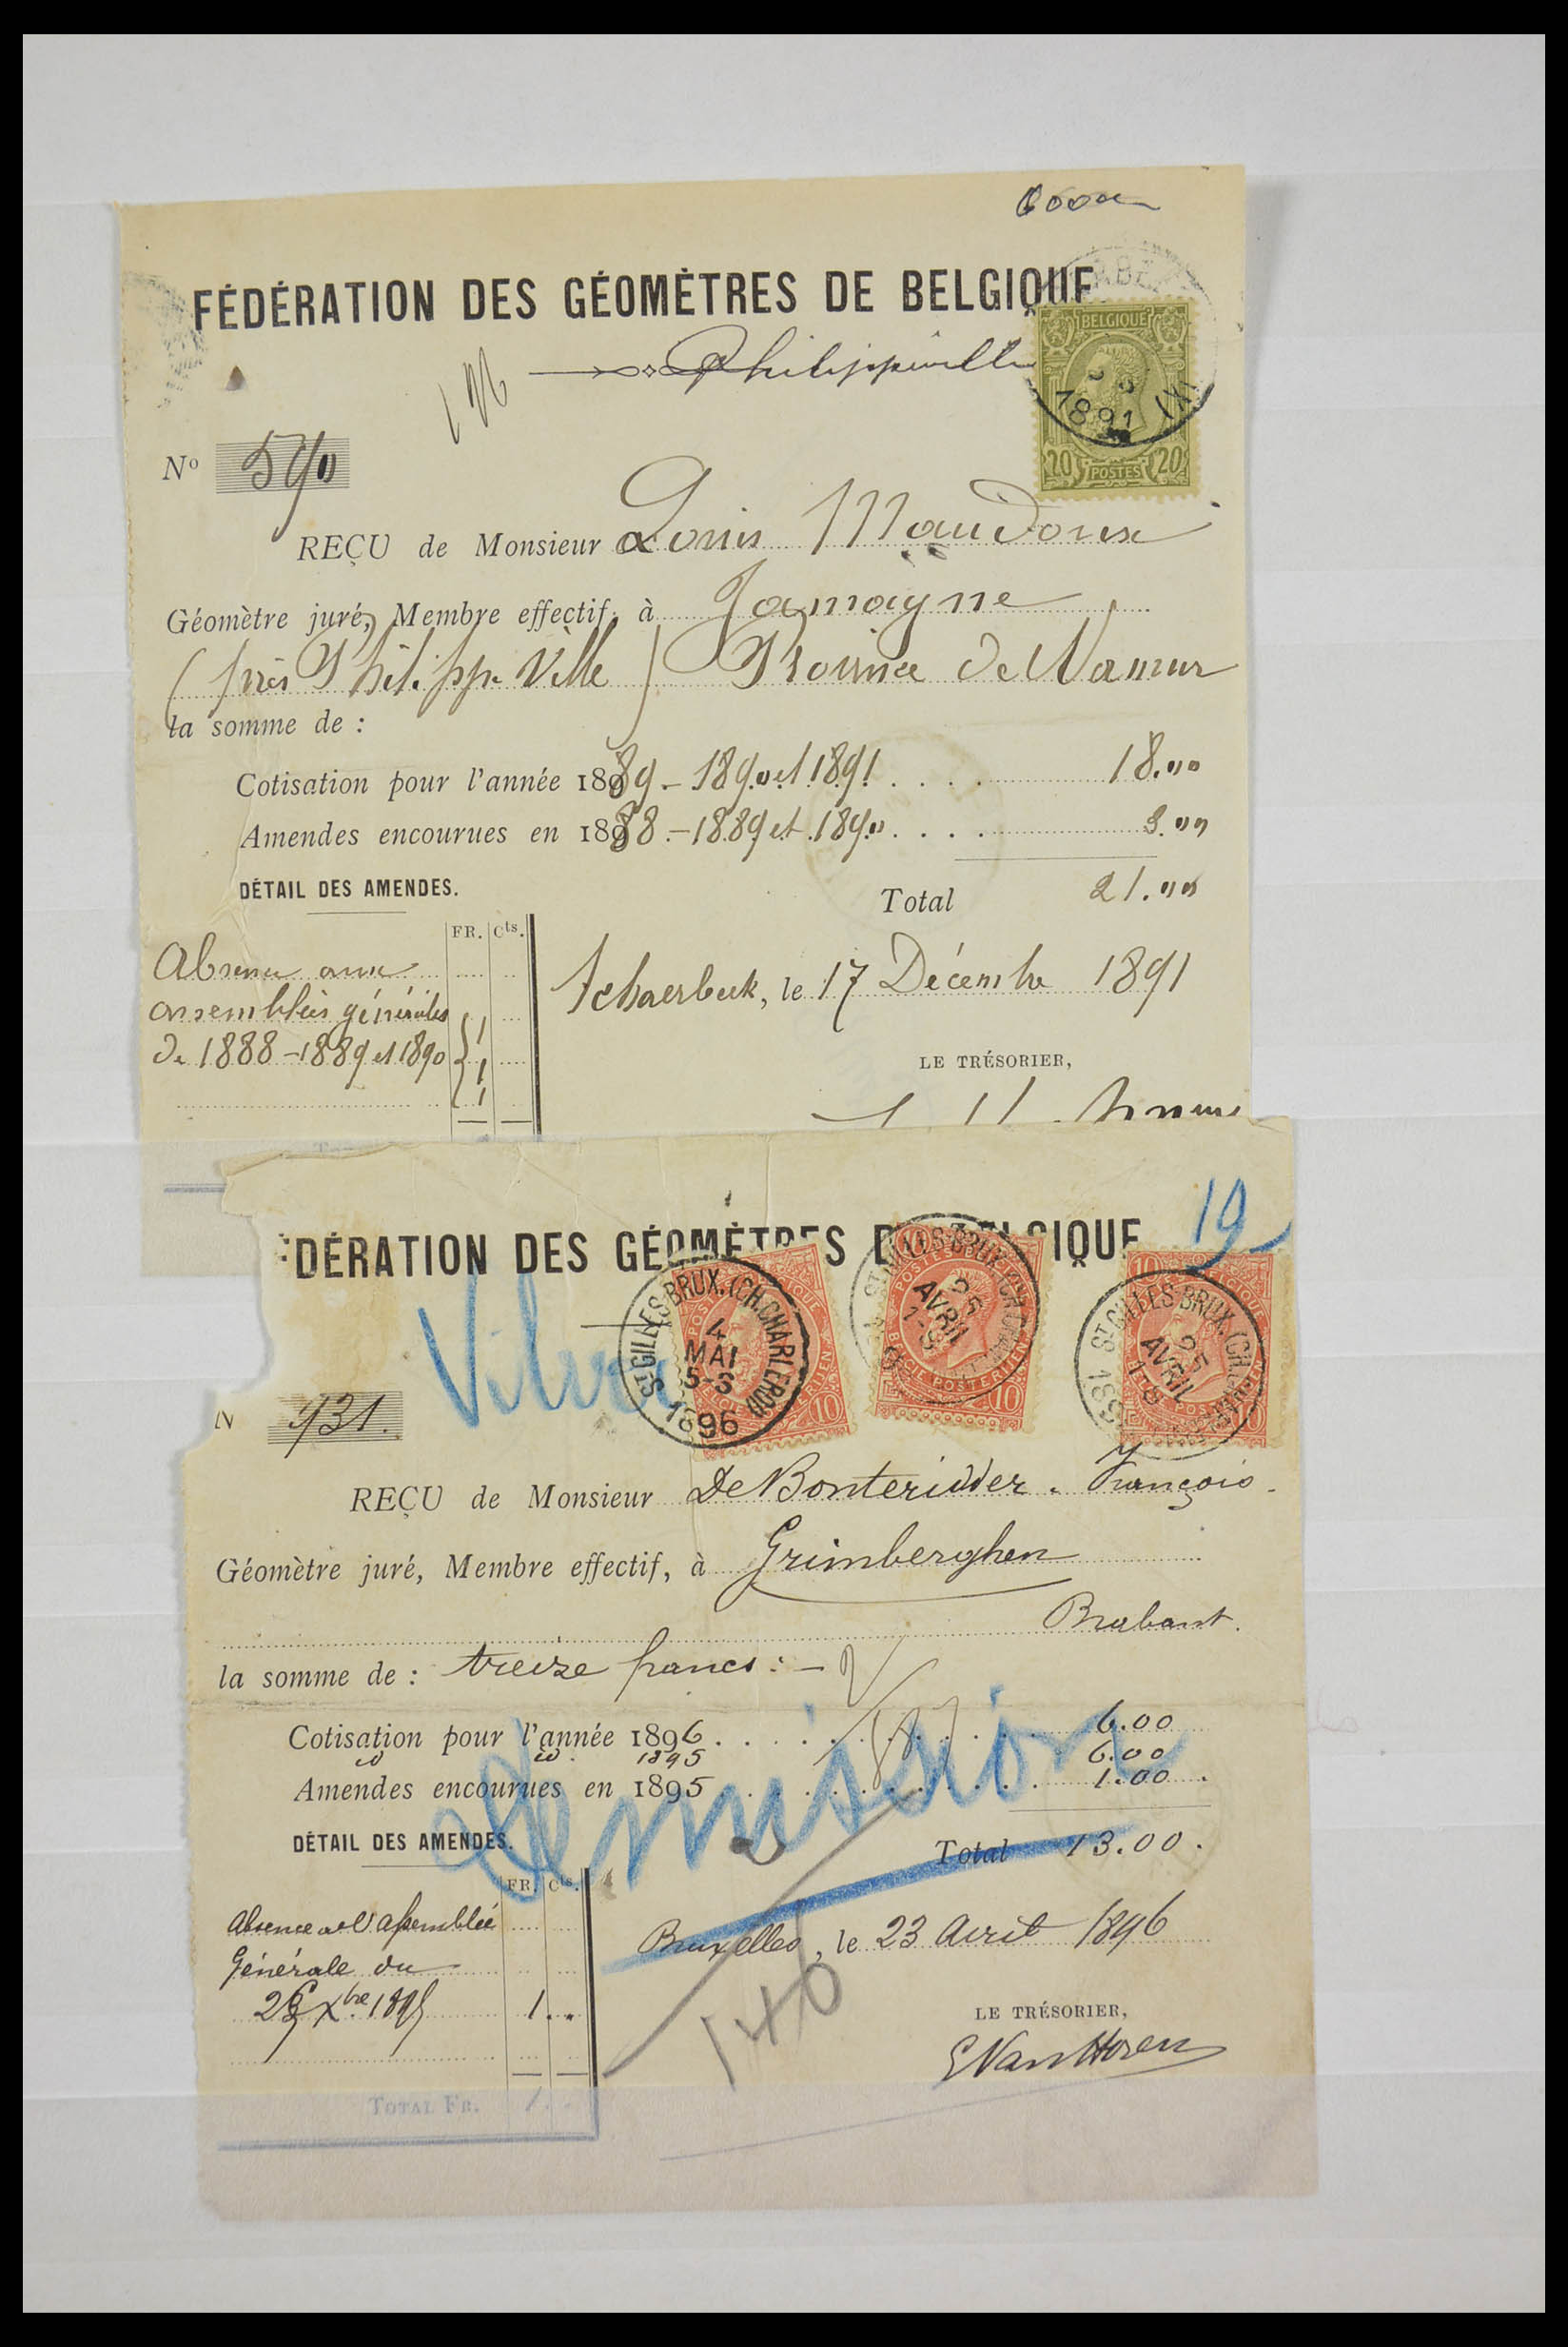 FÉDÉRATION DES GÉOMÈTRES DE BELGIQUE
Philippeville
BELGIQUE
1891
20 POSTES 20
No 590
REÇU de Monsieur Louis Maudoux
Géomètre juré, Membre effectif, à Jamaigne
(près Philippeville) Province de Namur
la somme de :
Cotisation pour l'année 1889 - 1890 et 1891 . . . . 18.00
Amendes encourues en 1888 - 1889 et 1890 . . . . 3.00
DÉTAIL DES AMENDES.
Total 21.00
FR. Cts.
Absence aux
assemblées générales
de 1888 - 1889 et 1890
1
1
1
Schaerbeek, le 17 Décembre 1891
LE TRÉSORIER,
19
DÉRATION DES GÉOMÈTRES D BELGIQUE
ST GILLES-BRUX. (CH. CHARLEROI)
4
MAI
5-S
1896
ST GILLES-BRUX. (CH.
25
AVRIL
ST GILLES-BRUX. (CH.
25
AVRIL
10
10
10
N 931.
REÇU de Monsieur De Bonteridder . François .
Géomètre juré, Membre effectif, à Grimberghen
Brabant.
la somme de : treize francs : -
Cotisation pour l'année 1896 . . . . 6.00
id id. 1895 6.00
Amendes encourues en 1895 . . . . 1.00 .
Démission
DÉTAIL DES AMENDES.
Total 13.00 .
FR. Cts.
Absence à l'assemblée
Générale du
Xbre 1895 1 . .
Bruxelles, le 23 avril 1896
140
LE TRÉSORIER,
E Van Horen
TOTAL FR. 1 . .